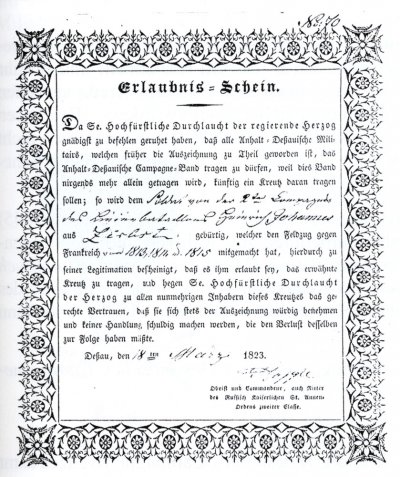 No 50
Erlaubnis = Schein.
Da Se. Hochfürstliche Durchlaucht der regierende Herzog
gnädigst zu befehlen geruhet haben, daß alle Anhalt = Deßauische Mili-
tairs, welchen früher die Auszeichnung zu Theil geworden ist, das
Anhalt = Deßauische Campagne = Band tragen zu dürfen, weil dies Band
nirgends mehr allein getragen wird, künftig ein Kreuz daran tragen
sollen; so wird dem Soldat von der 2ten Compagnie
des Johannes
aus Zerbst gebürtig, welcher den Feldzug gegen
Frankreich von 1813, 1814 u. 1815 mitgemacht hat, hierdurch zu
seiner Legitimation bescheinigt, daß es ihm erlaubt sey, das erwähnte
Kreuz zu tragen, und hegen Se. Hochfürstliche Durchlaucht
der Herzog zu allen nunmehrigen Inhabern dieses Kreuzes das ge-
rechte Vertrauen, daß sie sich stets der Auszeichnung würdig benehmen
und keiner Handlung schuldig machen werden, die den Verlust desselben
zur Folge haben müßte.
Deßau, den 18ten März 1823.
Obrist und Commandeur, auch Ritter
des Russisch Kaiserlichen St. Annen-
Ordens zweiter Classe.